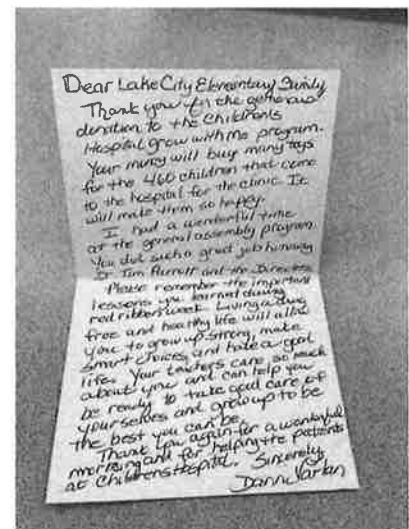 Dear Lake City Elementary Family
Thank you for the generous
donation to the Children's
Hospital grow with me program.
Your money will buy many toys
for the 460 children that come
to the hospital for the clinic. It
will make them so happy.
I had a wonderful time
at the general assembly program.
You did such a great job honoring
Tim and the
Please remember the important
lessons you learned during
red ribbon week. Living a drug
free and healthy life will allow
you to grow up strong, make
smart choices, and have a good
life. Your teachers care so much
about you and can help you
be ready to take good care of
yourselves and grow up to be
the best you can be.
Thank you again for a wonderful
morning and for helping the patients
at Childrens Hospital. Sincerely,